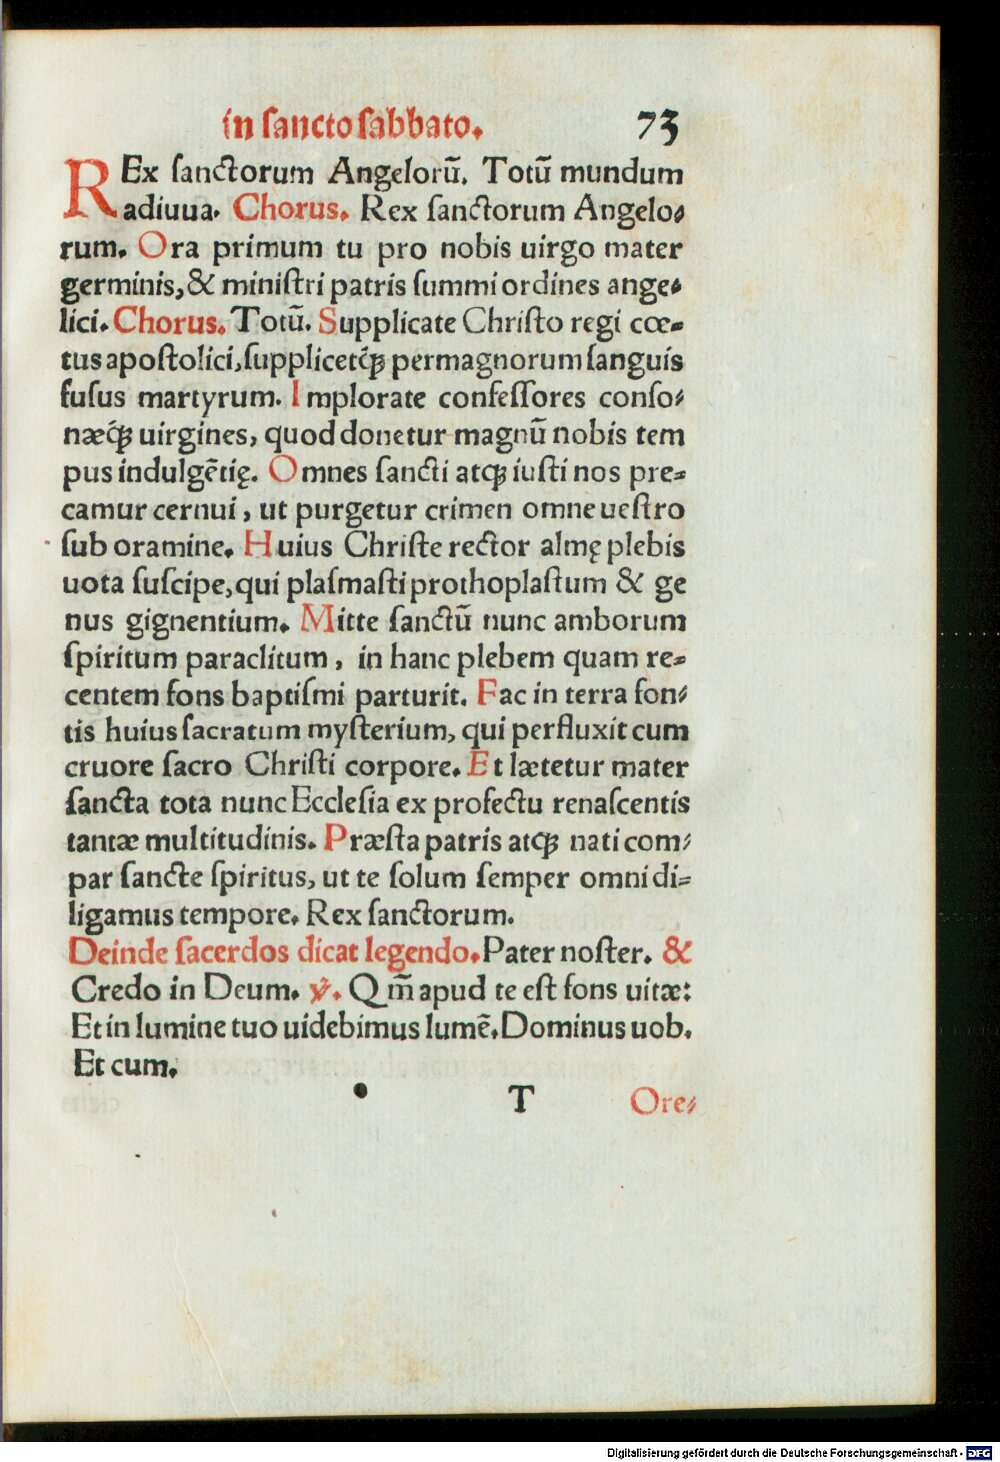 in ſancto ſabbato. 73
REx ſanctorum Angelorū. Totū mundum
adiuua. Chorus. Rex ſanctorum Angelo-
rum. Ora primum tu pro nobis uirgo mater
germinis, & miniſtri patris ſummi ordines ange-
lici. Chorus. Totū. Supplicate Chriſto regi cœ-
tus apoſtolici, ſupplicetq́ꝫ permagnorum ſanguis
fuſus martyrum. Implorate confeſſores conſo-
næq́ꝫ uirgines, quod donetur magnū nobis tem
pus indulgētię. Omnes ſancti atqꝫ iuſti nos pre-
camur cernui, ut purgetur crimen omne ueſtro
ſub oramine. Huius Chriſte rector almę plebis
uota ſuſcipe, qui plaſmaſti prothoplaſtum & ge
nus gignentium. Mitte ſanctū nunc amborum
ſpiritum paraclitum, in hanc plebem quam re-
centem fons baptiſmi parturit. Fac in terra fon-
tis huius ſacratum myſterium, qui perfluxit cum
cruore ſacro Chriſti corpore. Et lætetur mater
ſancta tota nunc Eccleſia ex profectu renaſcentis
tantæ multitudinis. Præſta patris atqꝫ nati com-
par ſancte ſpiritus, ut te ſolum ſemper omni di-
ligamus tempore. Rex ſanctorum.
Deinde ſacerdos dicat legendo. Pater noſter. &
Credo in Deum. ℣. Qm̄ apud te eſt fons uitæ:
Et in lumine tuo uidebimus lumē. Dominus uob.
Et cum.
T Ore-
Digitalisierung gefördert durch die Deutsche Forschungsgemeinschaft - DFG